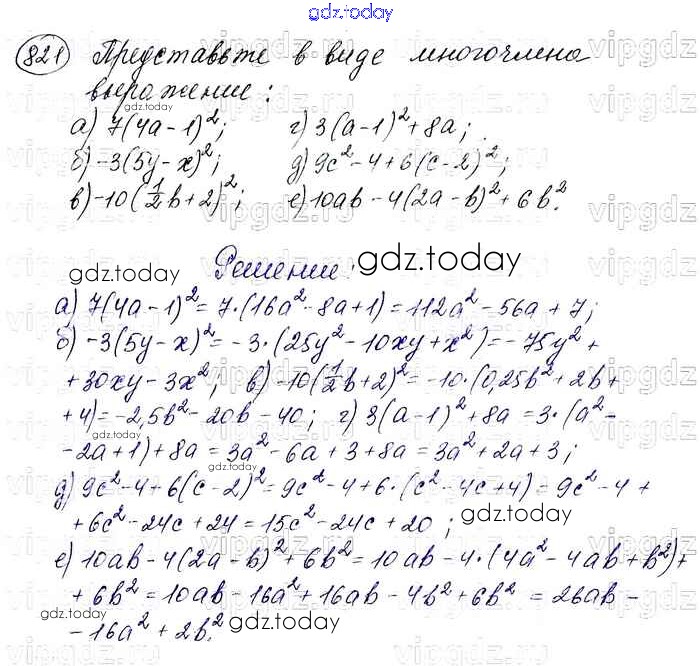 gdz.today
821 Представьте в виде многочлена
выражение:
gdz.today
а) 7(4a-1)²; г) 3(a-1)²+8a;
б) -3(5y-x)²; д) 9c²-4+6(c-2)²;
в) -10(1/2b+2)²; е) 10ab-4(2a-b)²+6b².
gdz.today
gdz.today Решение: gdz.today
а) 7(4a-1)²=7·(16a²-8a+1)=112a²-56a+7;
б) -3(5y-x)²=-3·(25y²-10xy+x²)=-75y²+
+30xy-3x²; в) -10(1/2b+2)²=-10·(0,25b²+2b+
+4)=-2,5b²-20b-40; г) 3(a-1)²+8a=3·(a²-
gdz.today
-2a+1)+8a=3a²-6a+3+8a=3a²+2a+3;
gdz.today
д) 9c²-4+6(c-2)²=9c²-4+6·(c²-4c+4)=9c²-4+
+6c²-24c+24=15c²-24c+20; gdz.today
е) 10ab-4(2a-b)²+6b²=10ab-4·(4a²-4ab+b²)+
+6b²=10ab-16a²+16ab-4b²+6b²=26ab-
-16a²+2b². gdz.today